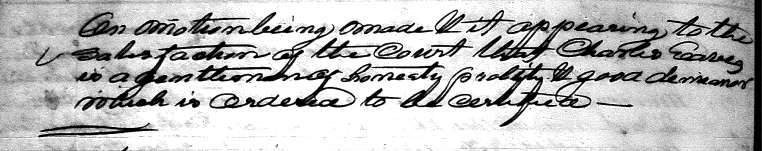 On motion being made & it appearing to the
satisfaction of the Court that Charles Eaves
is a gentleman of honesty probity & good demeanor
which is ordered to be certified —